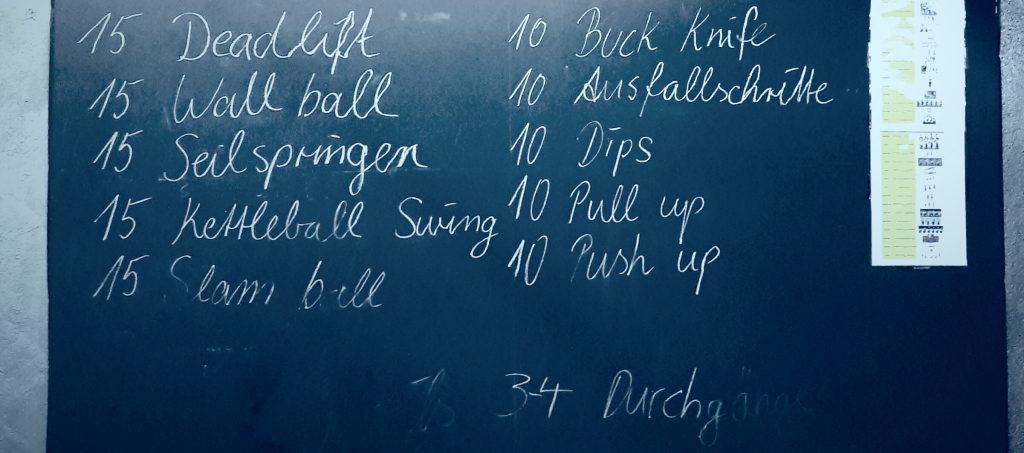 15 Deadlift
15 Wall ball
15 Seilspringen
15 Kettleball Swing
15 Slam ball
10 Buck Knife
10 Ausfallschritte
10 Dips
10 Pull up
10 Push up
3-4 Durchgänge